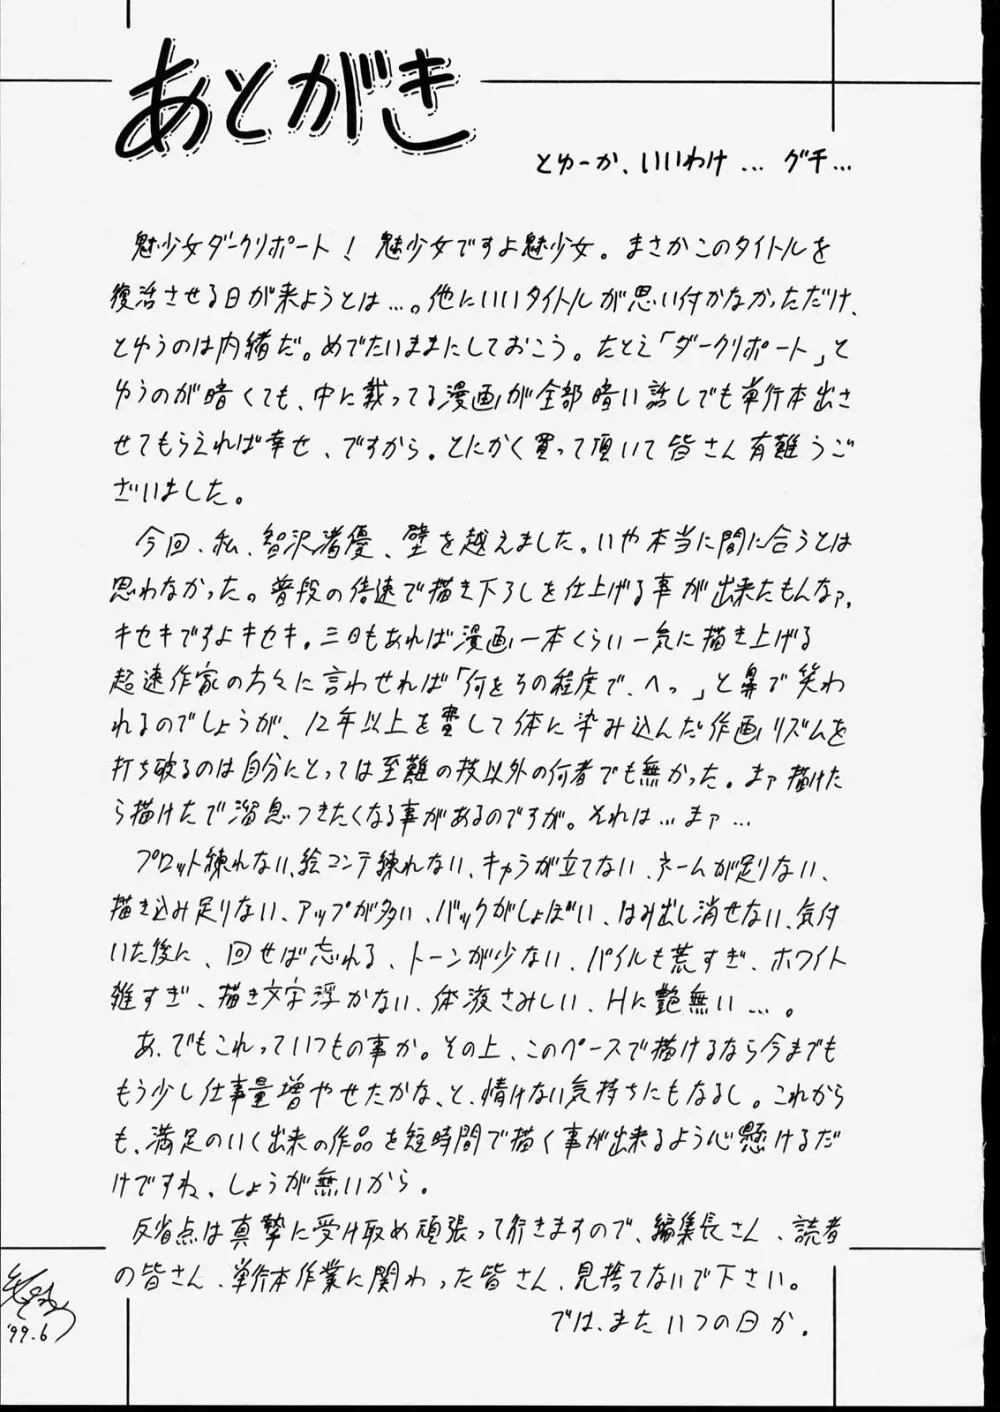 あとがき
とゆーか、いいわけ… グチ…
魅少女ダークリポート! 魅少女ですよ魅少女。まさかこのタイトルを
復活させる日が来ようとは…。他にいいタイトルが思い付かなかっただけ、
とゆうのは内緒だ。めでたいままにしておこう。たとえ「ダークリポート」と
ゆうのが暗くても、中に載ってる漫画が全部暗い話しでも単行本出さ
せてもらえれば幸せ、ですから。とにかく買って頂いて皆さん有難うご
ざいました。
今回、私、智沢渚優、壁を越えました。いや本当に間に合うとは
思わなかった。普段の倍速で描き下ろしを仕上げる事が出来たもんなァ。
キセキですよキセキ。三日もあれば漫画一本くらい一気に描き上げる
超速作家の方々に言わせれば「何をその程度で、へっ」と鼻で笑わ
れるのでしょうが、12年以上を費して体に染み込んだ作画リズムを
打ち破るのは自分にとっては至難の技以外の何者でも無かった。まァ描けた
ら描けたで溜息つきたくなる事があるのですが。それは…まァ…
プロット練れない、絵コンテ練れない、キャラが立てない、ネームが足りない、
描き込み足りない、アップが多い、バックがしょぼい、はみ出し消せない、気付
いた後に、回せば忘れる、トーンが少ない、パイルも荒すぎ、ホワイト
雑すぎ、描き文字浮かない、体液さみしい、Hに艶無い…。
あ、でもこれっていつもの事か。その上、このペースで描けるなら今までも
もう少し仕事量増やせたかな、と、情けない気持ちにもなるし。これから
も、満足のいく出来の作品を短時間で描く事が出来るよう心懸けるだ
けですね、しょうが無いから。
反省点は真摯に受け取め頑張って行きますので、編集長さん、読者
の皆さん、単行本作業に関わった皆さん、見捨てないで下さい。
では、また いつの日か。
'99.6